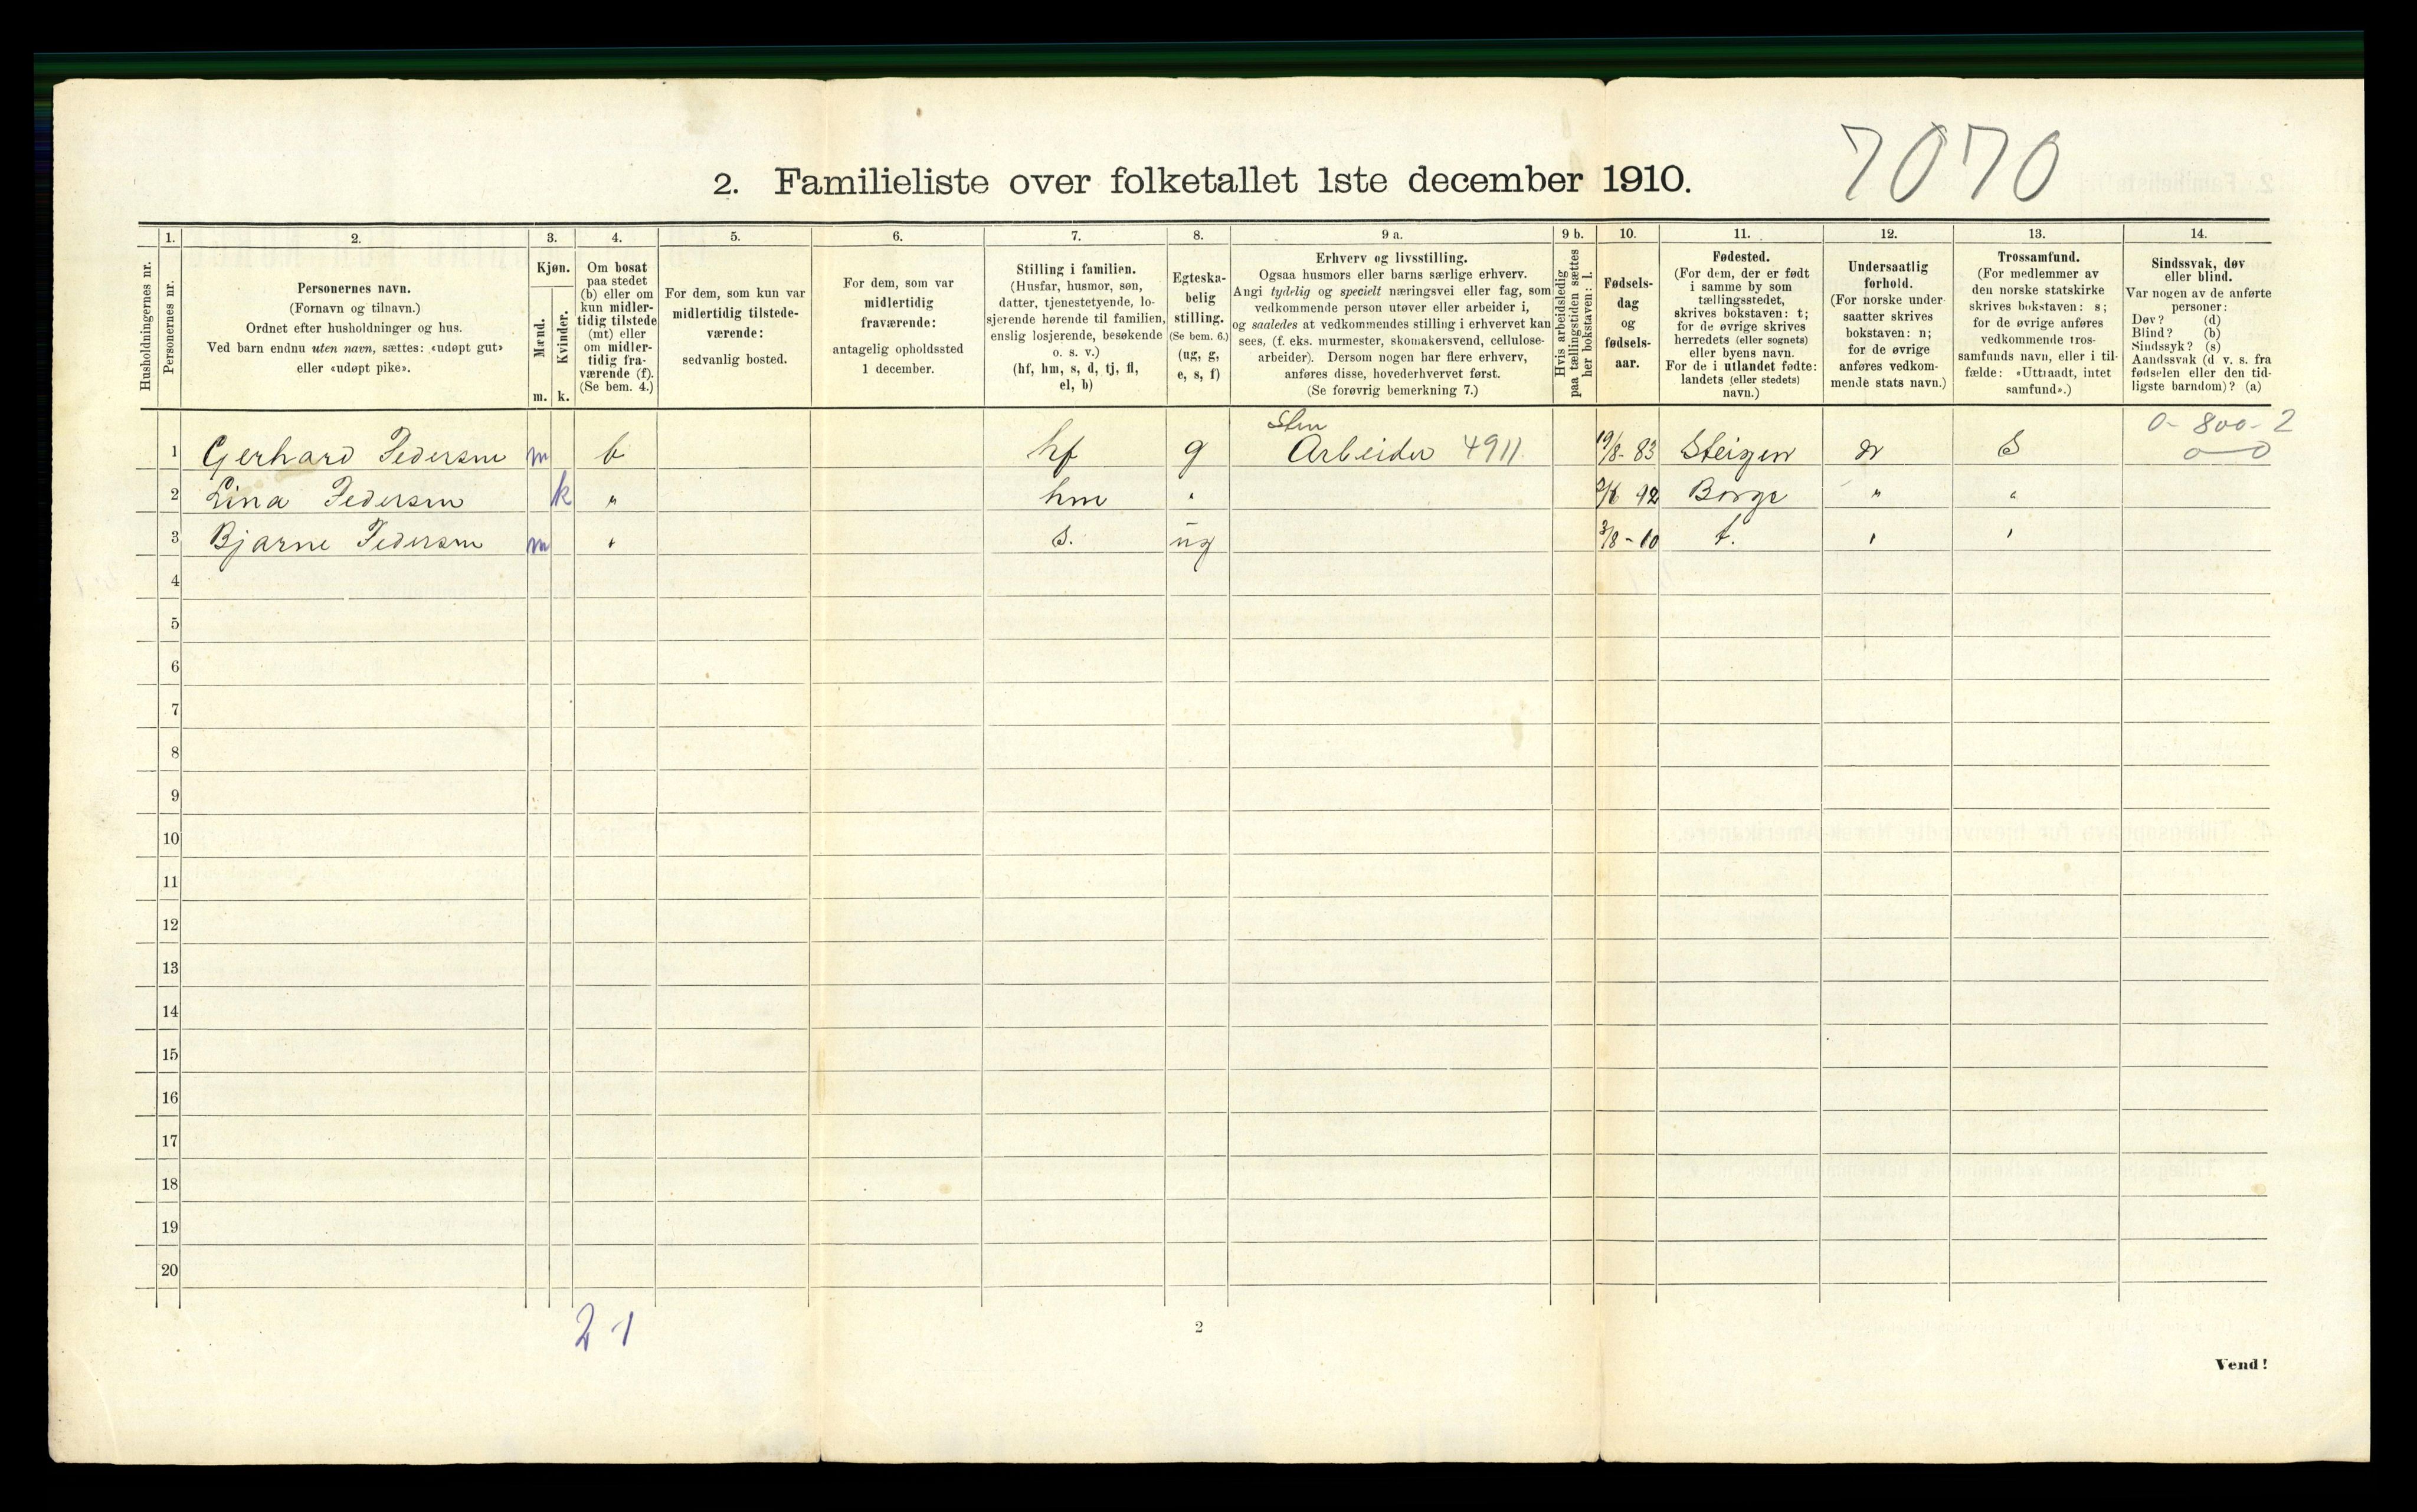 2. Familieliste over folketallet 1ste december 1910.
7070
Husholdningernes nr.
1.
Personernes nr.
2.
Personernes navn.
(Fornavn og tilnavn.)
Ordnet efter husholdninger og hus.
Ved barn endnu uten navn, sættes: «udøpt gut»
eller «udøpt pike».
3.
Kjøn.
Mænd.
Kvinder.
m. k.
4.
Om bosat
paa stedet
(b) eller om
kun midler-
tidig tilstede
(mt) eller
om midler-
tidig fra-
værende (f).
(Se bem. 4.)
5.
For dem, som kun var
midlertidig tilstede-
værende:
sedvanlig bosted.
6.
For dem, som var
midlertidig
fraværende:
antagelig opholdssted
1 december.
7.
Stilling i familien.
(Husfar, husmor, søn,
datter, tjenestetyende, lo-
sjerende hørende til familien,
enslig losjerende, besøkende
o. s. v.)
(hf, hm, s, d, tj, fl,
el, b)
8.
Egteska-
belig
stilling.
(Se bem. 6.)
(ug, g,
e, s, f)
9 a.
Erhverv og livsstilling.
Ogsaa husmors eller barns særlige erhverv.
Angi tydelig og specielt næringsvei eller fag, som
vedkommende person utøver eller arbeider i,
og saaledes at vedkommendes stilling i erhvervet kan
sees, (f. eks. murmester, skomakersvend, cellulose-
arbeider). Dersom nogen har flere erhverv,
anføres disse, hovederhvervet først.
(Se forøvrig bemerkning 7.)
9 b.
Hvis arbeidsledig
paa tællingstiden sættes
her bokstaven: l.
10.
Fødsels-
dag
og
fødsels-
aar.
11.
Fødested.
(For dem, der er født
i samme by som
tællingsstedet,
skrives bokstaven: t;
for de øvrige skrives
herredets (eller sognets)
eller byens navn.
For de i utlandet fødte:
landets (eller stedets)
navn.)
12.
Undersaatlig
forhold.
(For norske under-
saatter skrives
bokstaven: n;
for de øvrige
anføres vedkom-
mende stats navn.)
13.
Trossamfund.
(For medlemmer av
den norske statskirke
skrives bokstaven: s;
for de øvrige anføres
vedkommende tros-
samfunds navn, eller i til-
fælde: «Uttraadt, intet
samfund».)
14.
Sindssvak, døv
eller blind.
Var nogen av de anførte
personer:
Døv? (d)
Blind? (b)
Sindssyk? (s)
Aandssvak (d v. s. fra
fødselen eller den tid-
ligste barndom)? (a)
Sten 0-800-2
1 Gerhard Pedersen m b hf g Arbeider 4911 19/8-83 Steigen n S 0-0
2 Lina Pedersen k " hm " 92 Borge " "
3 Bjarne Pedersen m " s. ug 3/8-10 t. " "
4
5
6
7
8
9
10
11
12
13
14
15
16
17
18
19
20
2-1
2
Vend!